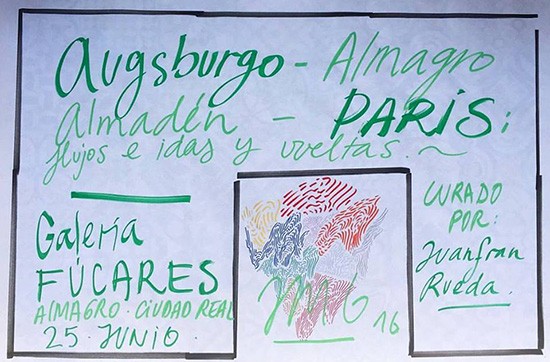 Augsburgo - Almagro
Almadén - PARIS:
flujos e idas y vueltas.~
Galería
FÚCARES
ALMAGRO · CIUDAD REAL
25 · JUNIO.
16
CURADO
POR:
Juanfran
Rueda.